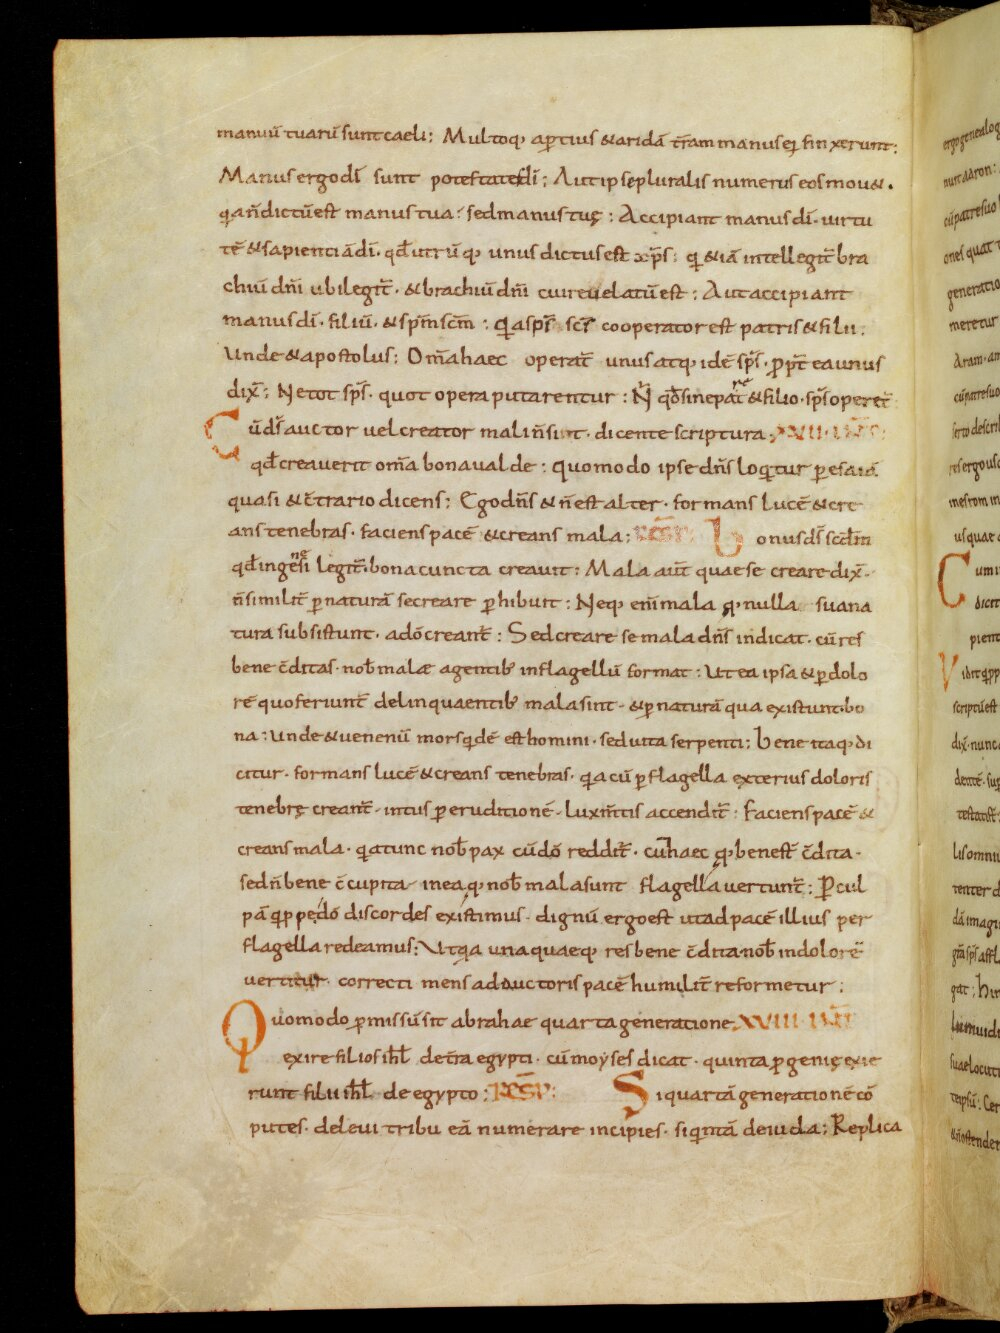 manuū tuarū sunt caeli; Multoq; aptius & aridā t̄ram manus ei finxerunt;
Manus ergo dī sunt potestates dī; Aut ipse pluralis numerus eos mou&.
q̄ā n̄ dictū est manus tua; sed manus tuę; Accipiant manus dī. uirtu
tē & sapientiā dī. qd̄ utrūq; unus dictus est xp̄s; qi &iā intellegit̄ bra
chiū dn̄i ubi legit̄. & brachiū dn̄i cui reuelatū est; Aut accipiant
manus dī. filiū. & sp̄m sc̄m; q̄a sp̄s sc̄s cooperator est patris & filii.
Unde & apostolus; Om̄a haec operat̄ unus atq; idē sp̄s. p̄pt̄ ea unus
dix̄; Ne tot sp̄s. quot opera putarentur; N̄ qd̄ sine patre & filio. sp̄s operet̄
Cū ds̄ auctor uel creator mali n̄ sint. dicente scriptura. XVII. INT̄
qd̄ creauerit om̄a bona ualde; quomodo ipse dn̄s loq̄tur p̄ esaiā
quasi & c̄trario dicens; Ego dn̄s & n̄ est alter. formans lucē & cre
ans tenebras. faciens pacē & creans mala; RESP̄ Bonus ds̄ scd̄m
qd̄ in genesi legit̄. bona cuncta creauit; Mala aut̄ quae se creare dix̄.
n̄ similit̄ p̄ naturā se creare p̄hibuit; Neq; eni mala q; nulla sua na
tura subsistunt. a dō creant̄; Sed creare se mala dn̄s indicat. cū res
bene c̄ditas. nob̄ male agentib; in flagellū format; Ut ea ipsa & p̄ dolo
rē quo feriunt̄ delinquaentib; mala sint. & p̄ naturā qua existunt. bo
na; Unde & uenenū mors qidē est homini. sed uita serpenti; Bene itaq; di
citur. formans lucē & creans tenebras. q̄a cū p̄ flagella exterius doloris
tenebrę creant̄. intus p̄ eruditionē. lux m̄tis accendit̄; Faciens pacē &
creans mala. q̄a tunc nob̄ pax cū dō reddit̄. cū haec q; bene st̄ c̄dita.
sed n̄ bene c̄cupita. in ea q; nob̄ mala sunt flagella uertunt̄; P̄ cul
pā q̄ppe dō discordes existimus. dignū ergo est ut ad pacē illius per
flagella redeamus; Ut q̄a una quaeq; res bene c̄dita. nob̄ in dolorē
uertitur. correcti mens ad auctoris pacē humilit̄ reformetur;
Quomodo p̄missū sit abrahae quarta generatione XVIII. INT̄
exire filios isrl̄ de t̄ra egypti. cū moyses dicat. quinta p̄genię exie
runt filii isrl̄ de egypto; RESP̄; Si quartā generationē cō
putes. de leui tribu eā numerare incipies. si qintā de iuda; Replica